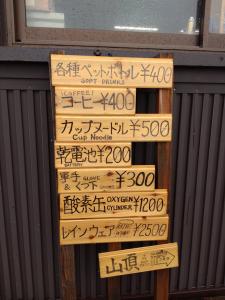 各種ペットボトル¥400
SOFT DRINKS
(COFFEE)
コーヒー¥400
カップヌードル¥500
Cup Noodle
乾電池¥200
BATTERY
軍手 GLOVE ¥300
& くつ下
酸素缶 OXYGEN CYLINDER ¥1200
レインウェア ¥2500
山頂